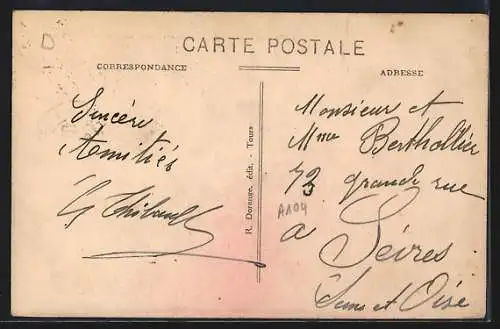 D
CARTE POSTALE
CORRESPONDANCE
ADRESSE
Sincère
Amitiés
Thibault
R. Dorange, édit. - Tours
Monsieur et
Mme Berthollier
73 grande rue
A104
a Sèvres
Seine et Oise